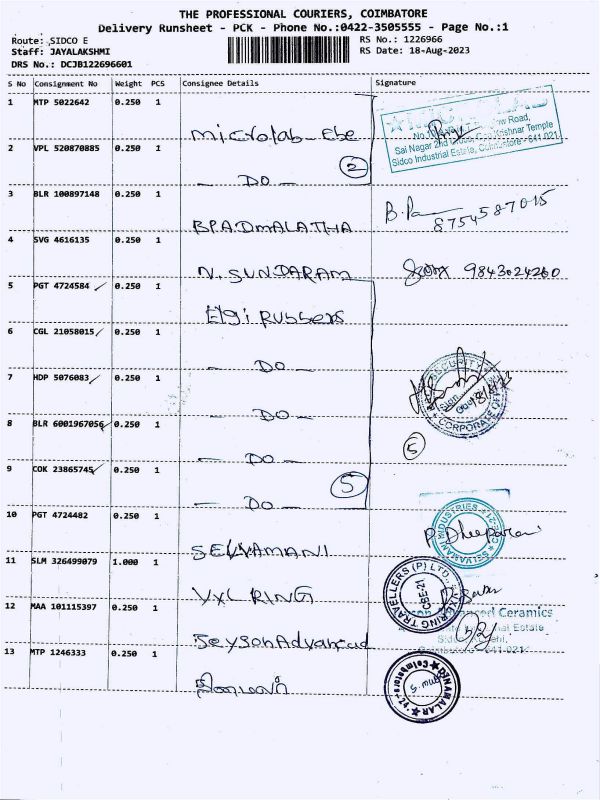 THE PROFESSIONAL COURIERS, COIMBATORE
Delivery Runsheet - PCK - Phone No.:0422-3505555 - Page No.:1
Route: SIDCO E
RS No.: 1226966
Staff: JAYALAKSHMI
RS Date: 18-Aug-2023
DRS No.: DCJB122696601
S No Consignment No Weight PCS Consignee Details Signature
1 MTP 5022642 0.250 1 Microlab - Cbe
Sai Nagar 2nd Krishnar Temple
Sidco Industrial Estate, Coimbatore - 641 021
2 VPL 520870885 0.250 1 - DO -
2
3 BLR 100897148 0.250 1 B PADMALATHA 8754587015
4 SVG 4616135 0.250 1 N. SUNDARAM 9843024260
5 PGT 4724584 0.250 1 Elgi Rubbers
6 CGL 21058015 0.250 1 - DO -
7 HDP 5076083 0.250 1 - DO -
SECURITY
CORPORATE OFFICE
8 BLR 6001967056 0.250 1 - DO -
5
9 COK 23865745 0.250 1 - DO -
5
10 PGT 4724482 0.250 1 SELVAMANI
SELVAMANI INDUSTRIES
11 SLM 326499079 1.000 1 VXL RING
RING TRAVELLERS (P) LTD.
CBE-21
12 MAA 101115397 0.250 1 Seyson Advanced
Ceramics
13 MTP 1246333 0.250 1 தினமலர்
DINAMALAR
Coimbatore